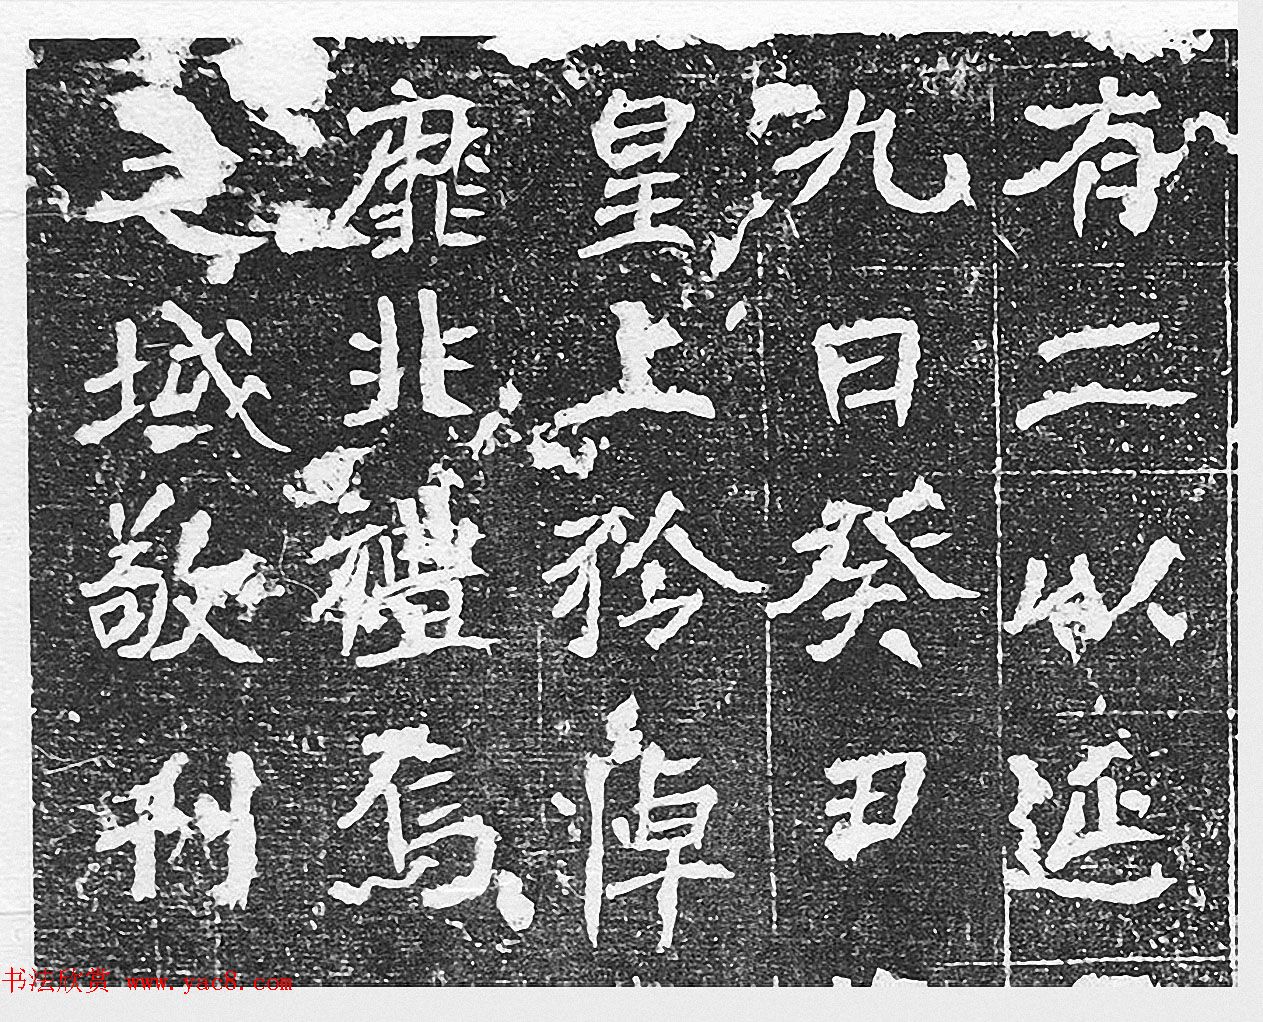 有二以延
九日癸丑
皇上矜悼
靡非禮焉
之域敬刊
书法欣赏 www.yac8.com